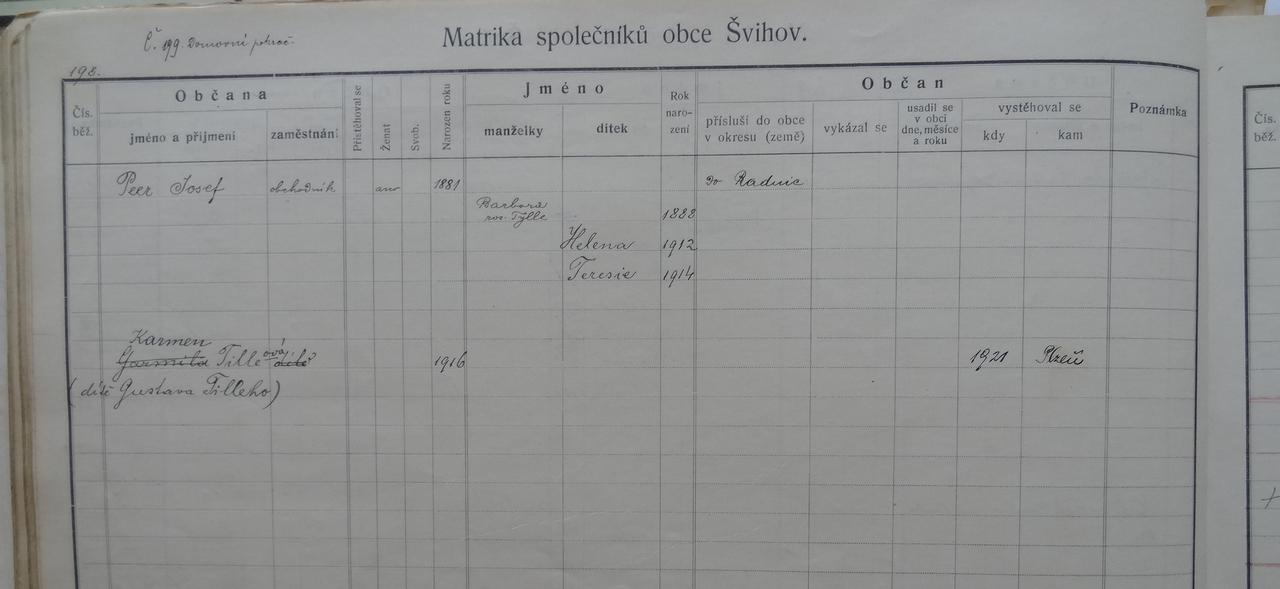 Č 199. Domovní pokrač.
Matrika společníků obce Švihov.
198.
Čís. běž.
Občana
jméno a příjmení
zaměstnání
Přistěhoval se
Ženat
Svob.
Narozen roku
Jméno
manželky
dítek
Rok naro- zení
Občan
přísluší do obce v okresu (země)
vykázal se
usadil se v obci dne, měsíce a roku
vystěhoval se
kdy
kam
Poznámka
Čís. běž.
Peer Josef obchodník ano 1881 do Radnic
Barbora
roz. Tylle 1888
Helena 1912
Teresie 1914
Karmen
Garmila Tilleová dítě 1916 1921 Plzeň
(dítě Gustava Tilleho)